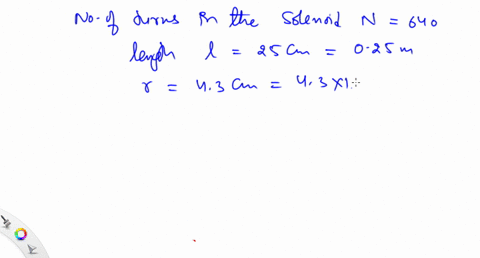 No. of turns in the solenoid N = 640
length l = 25 cm = 0.25 m
r = 4.3 cm = 4.3 x1